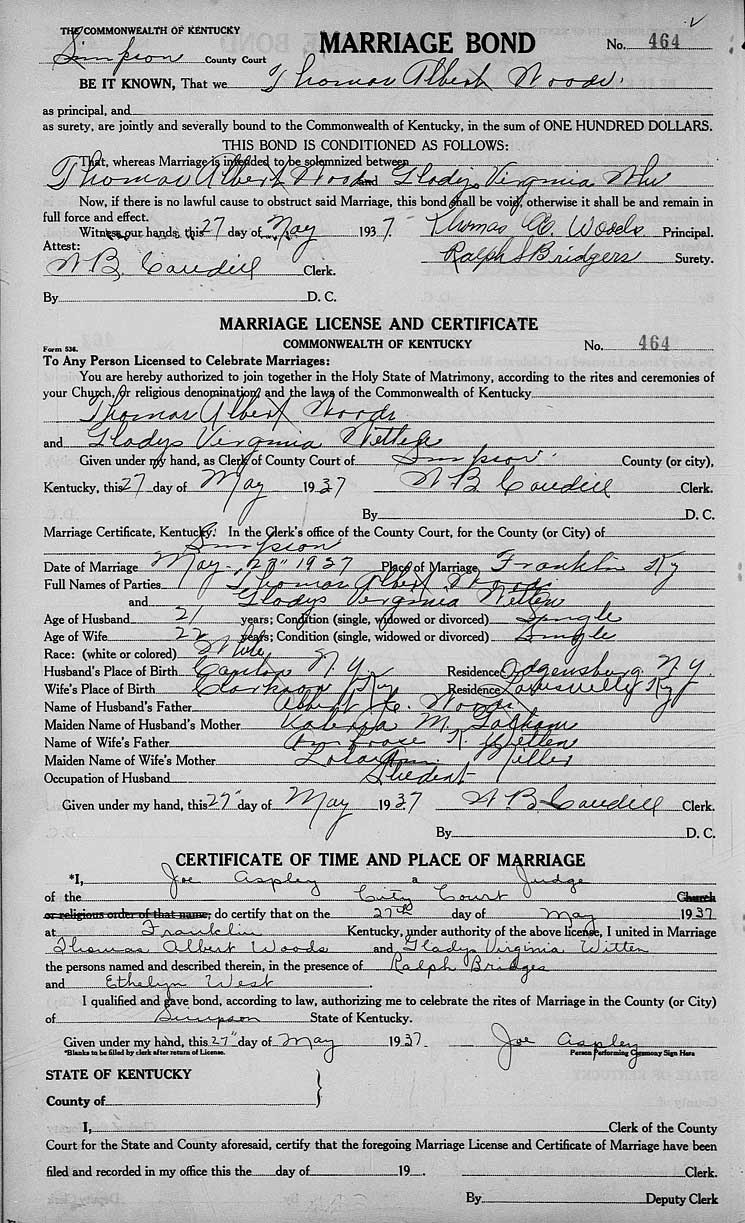 THE COMMONWEALTH OF KENTUCKY
Simpson County Court
MARRIAGE BOND
No. 464
BE IT KNOWN, That we Thomas Albert Woods
as principal, and
as surety, are jointly and severally bound to the Commonwealth of Kentucky, in the sum of ONE HUNDRED DOLLARS.
THIS BOND IS CONDITIONED AS FOLLOWS:
That, whereas Marriage is intended to be solemnized between
Thomas Albert Woods and Gladys Virginia
Now, if there is no lawful cause to obstruct said Marriage, this bond shall be void, otherwise it shall be and remain in
full force and effect.
Witness our hands, this 27 day of May 1937 Thomas A. Woods Principal.
Attest: Ralph S Bridgers Surety.
W B. Caudill Clerk.
By D. C.
MARRIAGE LICENSE AND CERTIFICATE
Form 536. COMMONWEALTH OF KENTUCKY No. 464
To Any Person Licensed to Celebrate Marriages:
You are hereby authorized to join together in the Holy State of Matrimony, according to the rites and ceremonies of
your Church, or religious denomination, and the laws of the Commonwealth of Kentucky
Thomas Albert Woods
and Gladys Virginia Witten
Given under my hand, as Clerk of County Court of Simpson County (or city),
Kentucky, this 27 day of May 1937 W B Caudill Clerk.
By D. C.
Marriage Certificate, Kentucky. In the Clerk's office of the County Court, for the County (or City) of
Simpson
Date of Marriage May 27" 1937 Place of Marriage Franklin Ky
Full Names of Parties Thomas Albert Woods
and Gladys Virginia Witten
Age of Husband 21 years; Condition (single, widowed or divorced) Single
Age of Wife 22 years; Condition (single, widowed or divorced) Single
Race: (white or colored) White
Husband's Place of Birth Canton N. Y. Residence Ogdensburg N. Y.
Wife's Place of Birth Clarkson Ky Residence Louisville Ky
Name of Husband's Father Albert Woods
Maiden Name of Husband's Mother M.
Name of Wife's Father Ambrose Witten
Maiden Name of Wife's Mother Miller
Occupation of Husband Student
Given under my hand, this 27" day of May 1937 W B. Caudill Clerk.
By D. C.
CERTIFICATE OF TIME AND PLACE OF MARRIAGE
*I, Joe Aspley a Judge
of the City Court Church
or religious order of that name, do certify that on the 27th day of May 1937
at Franklin Kentucky, under authority of the above license, I united in Marriage
Thomas Albert Woods and Gladys Virginia Witten
the persons named and described therein, in the presence of Ralph Bridges
and Ethelyn West.
I qualified and gave bond, according to law, authorizing me to celebrate the rites of Marriage in the County (or City)
of Simpson State of Kentucky.
Given under my hand, this 27" day of May 1937 Joe Aspley
*Blanks to be filled by clerk after return of License. Person Performing Ceremony Sign Here
STATE OF KENTUCKY
County of
I, Clerk of the County
Court for the State and County aforesaid, certify that the foregoing Marriage License and Certificate of Marriage have been
filed and recorded in my office this the day of 19. Clerk.
By Deputy Clerk